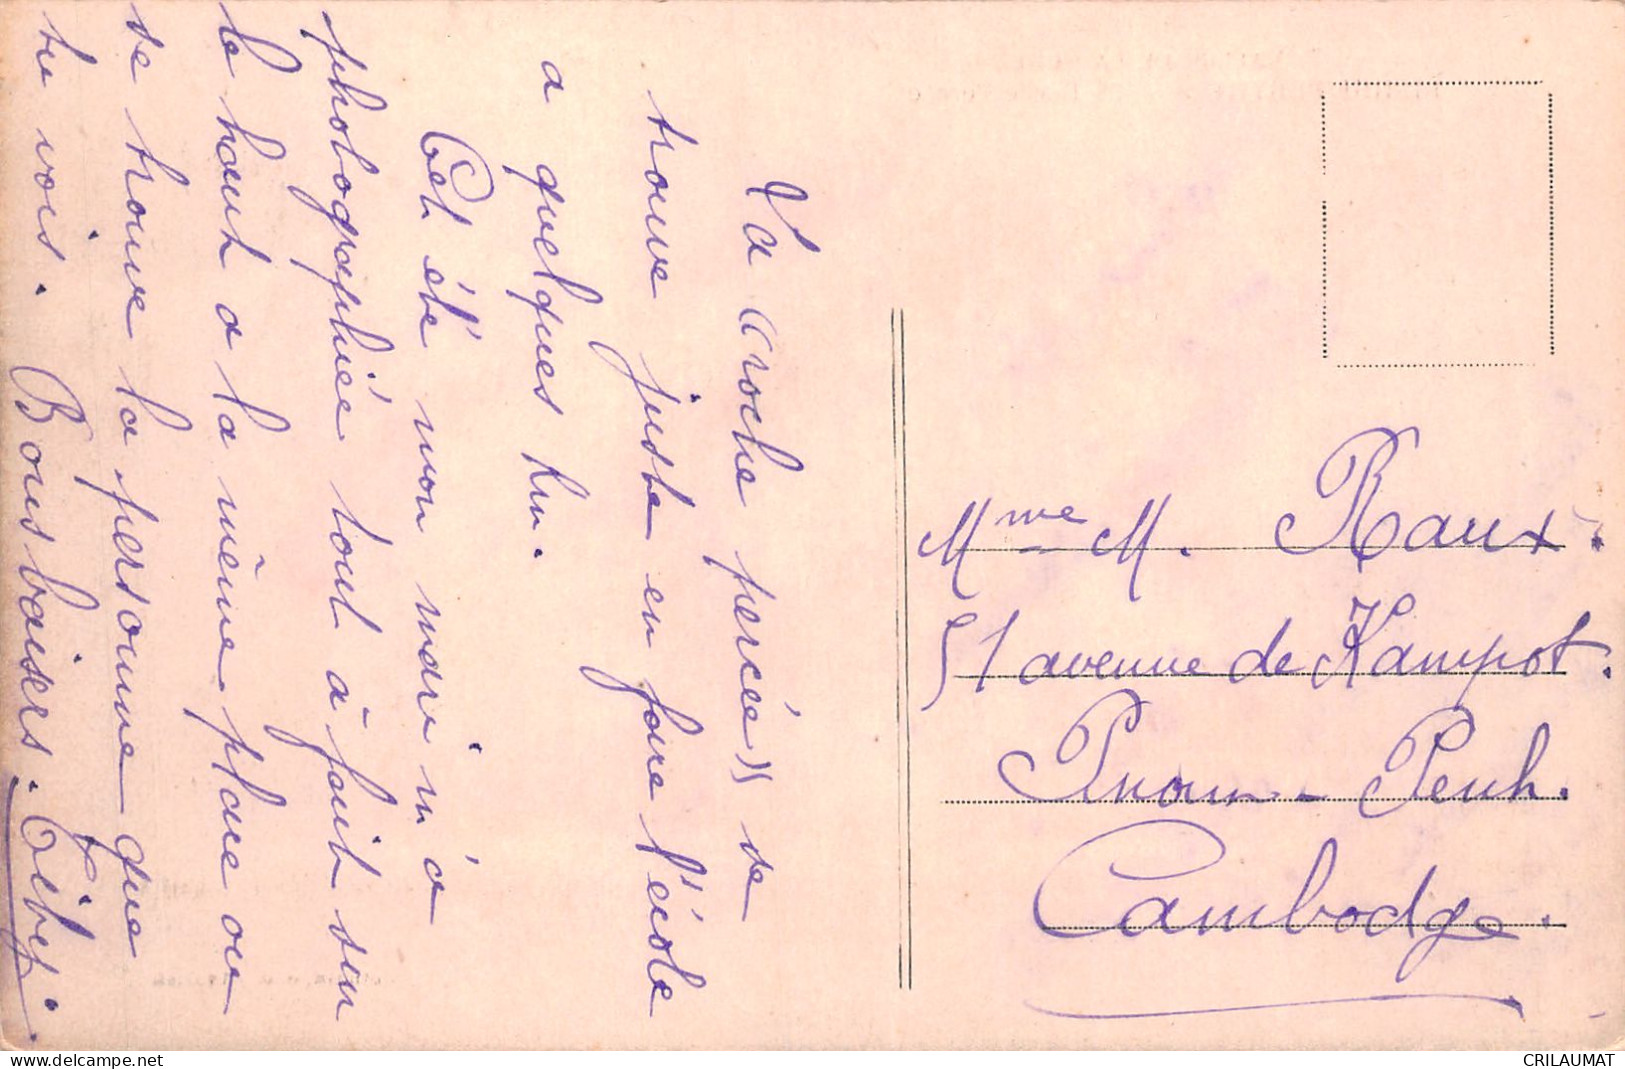 La (roche percée)) se
trouve juste en face l'école
a quelques km.
Cet été mon mari m'a
photographiée tout à fait sur
le haut a la même place ou
se trouve la personne que
tu vois. Bons baisers.
Mme M. Raux.
51 avenue de Kampot.
Pnom-Penh.
Cambodge.
www.delcampe.net
CRILAUMAT